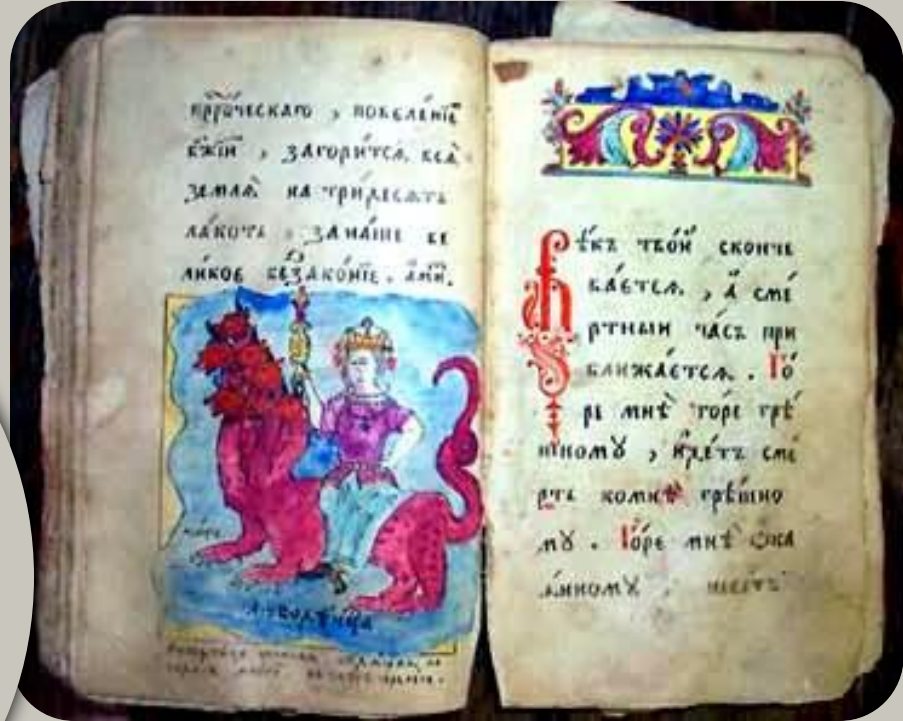 прⷪ҇ро́ческаго , повеле́нїе
бж҃їи , загори́тсѧ всѧ̀
землѧ̀ на три́десѧть
лако́ть за на́ше ве
ли́кое беззако́нїе . а҆ми́н.
люборѣ́ица
Вѣ́къ тво́й сконче
ва́етсѧ , а҆ сме́
ртный ча́съ при
ближа́етсѧ . Го́
ре мнѣ̀ го́ре грѣ́
шному , и҆де́тъ сме́
рть ко мнѣ̀ грѣ́шно
му . Го́ре мнѣ̀ ѻ҆ка
ѧ́нному , несе́тъ